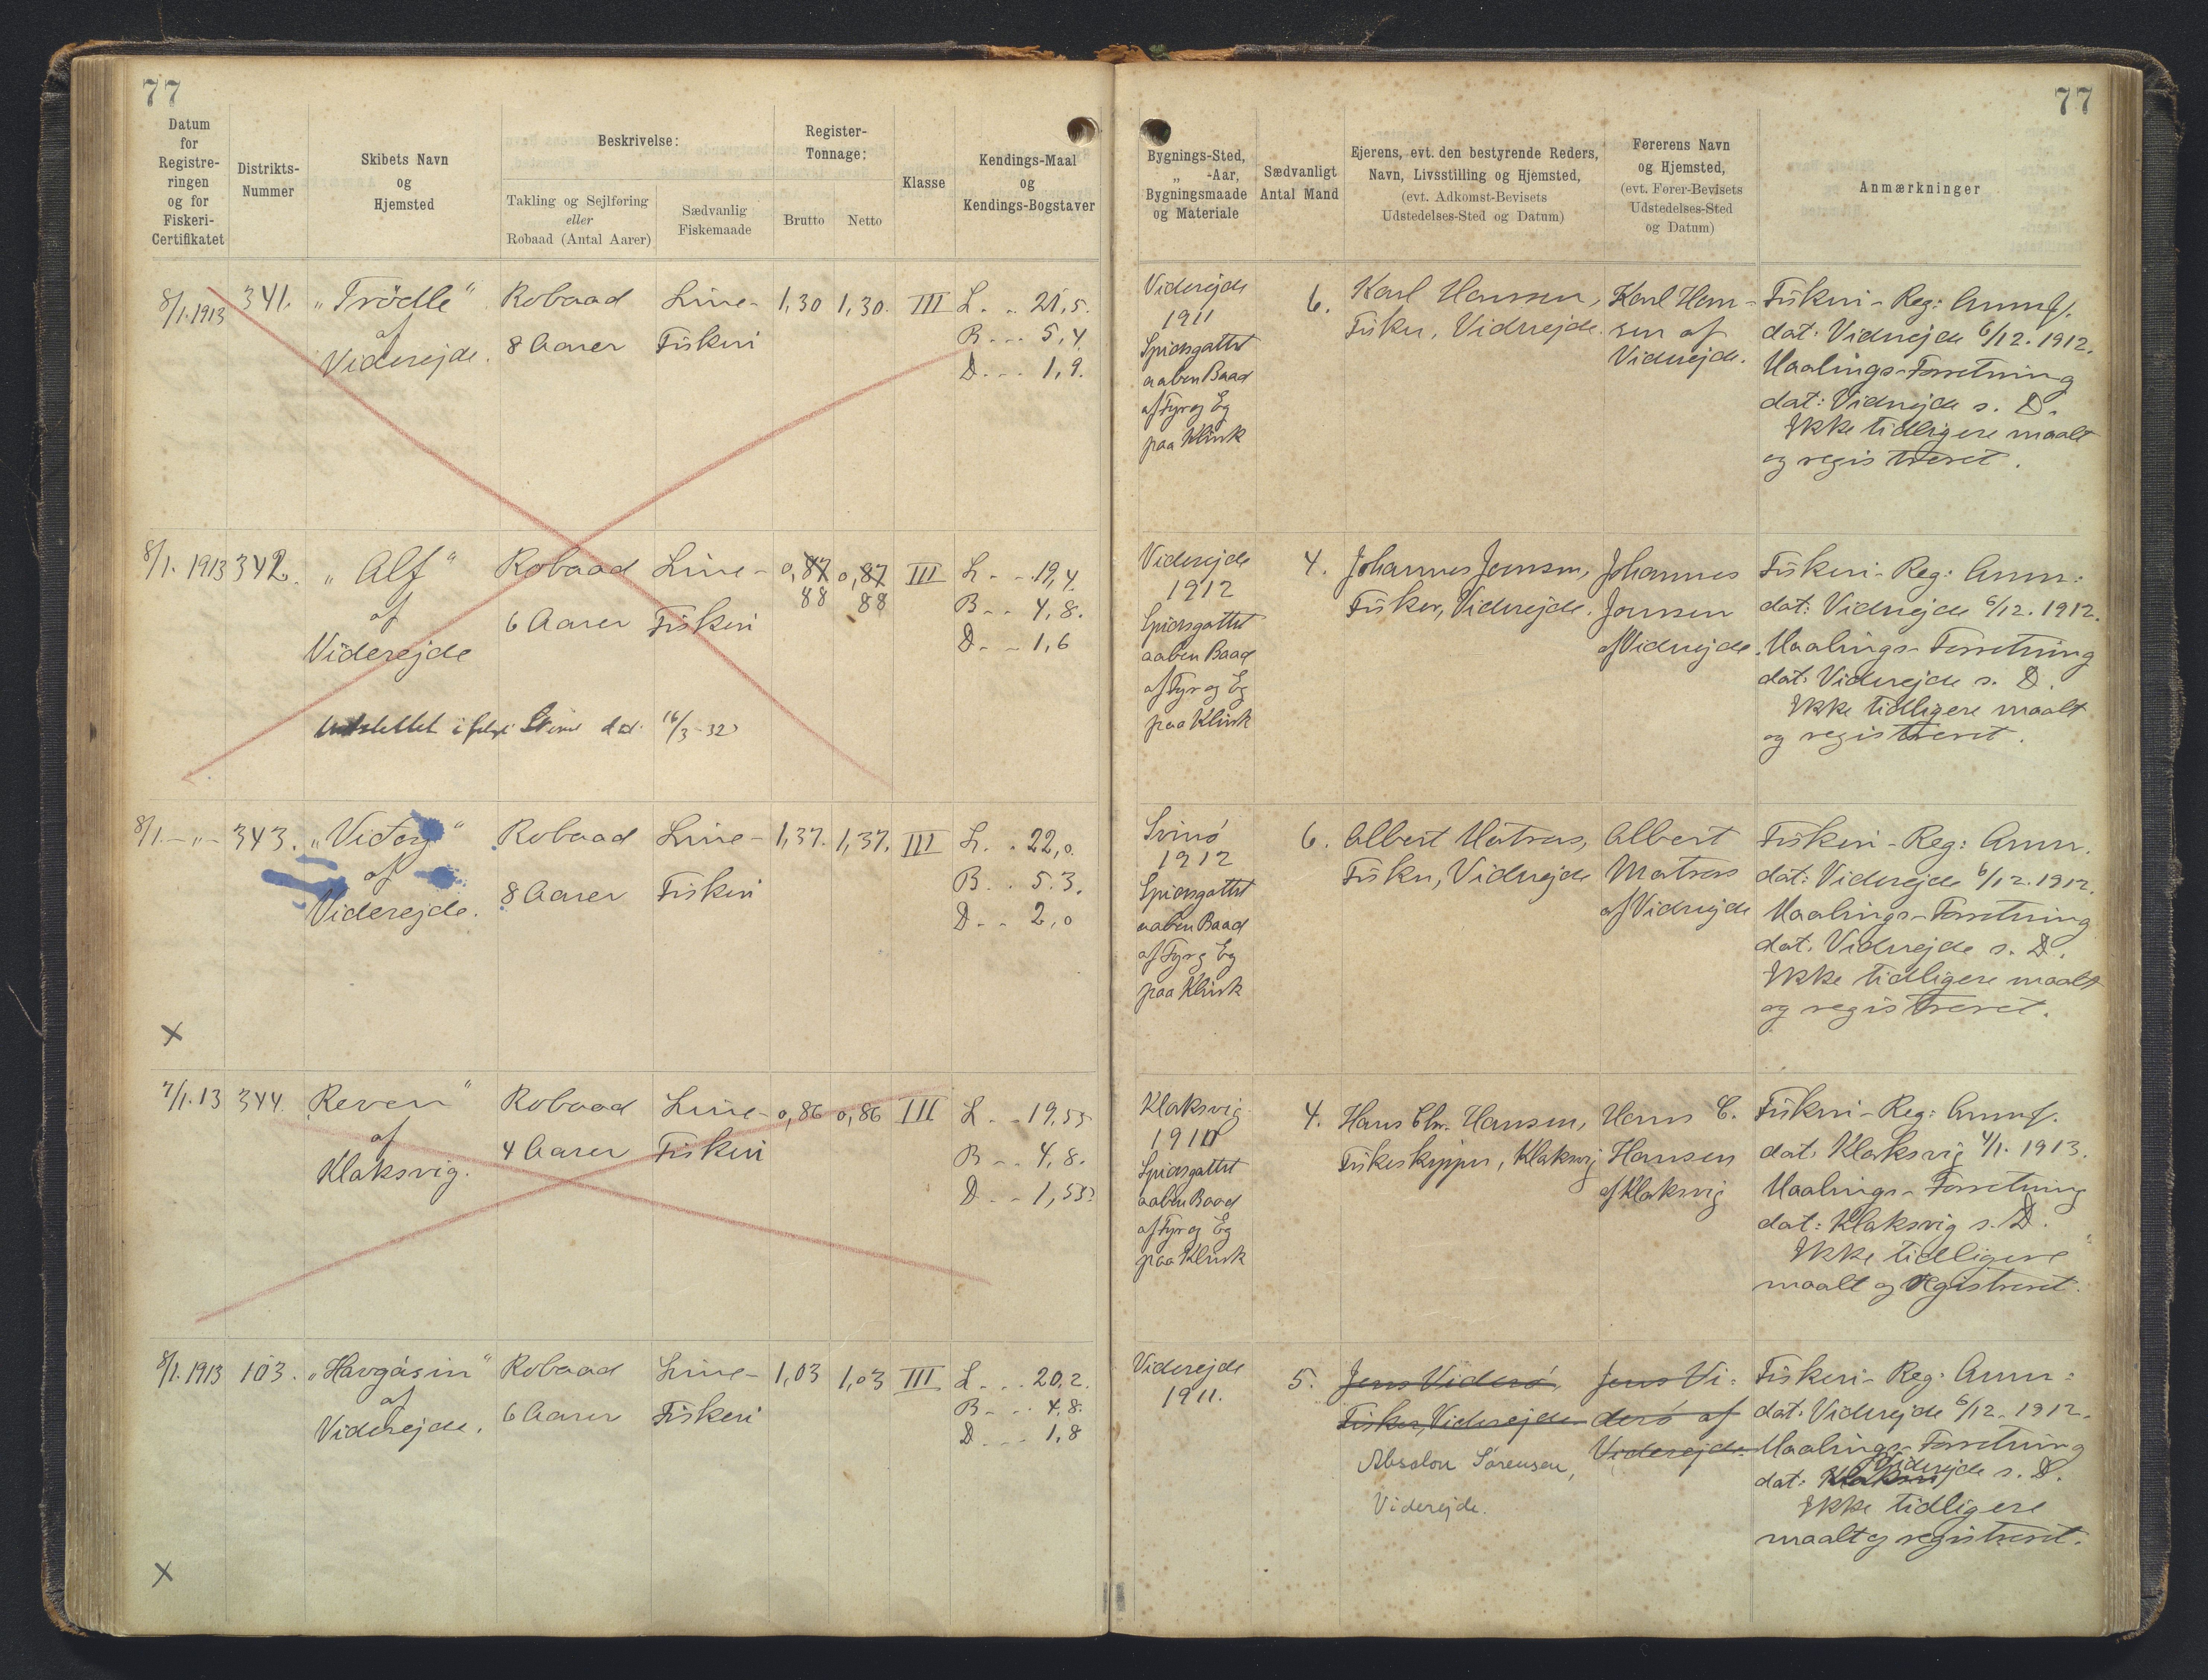 77
77
Datum
for
Registre-
ringen
og for
Fiskeri-
Certifikatet
Distrikts-
Nummer
Skibets Navn
og
Hjemsted
Beskrivelse:
Takling og Sejlføring
eller
Robaad (Antal Aarer)
Sædvanlig
Fiskemaade
Register-
Tonnage:
Brutto
Netto
Klasse
Kendings-Maal
og
Kendings-Bogstaver
Bygnings-Sted,
„ -Aar,
Bygningsmaade
og Materiale
Sædvanligt
Antal Mand
Ejerens, evt. den bestyrende Reders,
Navn, Livsstilling og Hjemsted,
(evt. Adkomst-Bevisets
Udstedelses-Sted og Datum)
Førerens Navn
og Hjemsted,
(evt. Fører-Bevisets
Udstedelses-Sted
og Datum)
Anmærkninger
8/1.1913
341.
„Trödle"
af
Viderejde.
Robaad
8 Aarer
Line-
Fiskeri
1,30
1,30.
III
L. .. 21,5.
B. ... 5,4.
D. ... 1,9.
Viderejde
1911
Spidsgattet
aaben Baad
af Fyr og Eg
paa Klink
6.
Karl Hansen,
Fisker, Viderejde.
Karl Han-
sen af
Viderejde.
Fiskeri-Reg: Anmf.
dat: Viderejde 6/12. 1912.
Maalings-Forretning
dat: Viderejde s. D.
Ikke tidligere maalt
og registreret.
8/1. 1913
342.
„Alf"
af
Viderejde
Robaad
6 Aarer
Line-
Fiskeri
0,87
88
0,87
88
III
L. .. 19,4.
B. .. 4,8.
D. .. 1,6
Udslettet ifølge dat. 16/3-32
Viderejde
1912
Spidsgattet
aaben Baad
af Fyr og Eg
paa Klink
4.
Johannes Joensen,
Fisker, Viderejde.
Johannes
Joensen
af Viderejde.
Fiskeri-Reg: Anm:
dat: Viderejde 6/12. 1912.
Maalings-Forretning
dat: Viderejde s. D.
Ikke tidligere maalt
og registreret.
8/1.-„-
343.
af
Viderejde.
Robaad
8 Aarer
Line-
Fiskeri
1,37.
1,37.
III
L. . 22,0.
B. . . 5.3.
D. .. 2,0
Svinö
1912
Spidsgattet
aaben Baad
af Fyr og Eg
paa Klink
6.
Albert Matras,
Fisker, Viderejde
Albert
Matras
af Viderejde
Fiskeri-Reg: Anm.
dat: Viderejde 6/12. 1912.
Maalings-Forretning
dat. Viderejde s. D.
Ikke tidligere maalt
og registreret.
X
7/1.13
344.
Reven"
af
Klaksvig.
Robaad
4 Aarer
Line-
Fiskeri
0,86
0,86
III
L. .. 19,55
B. .. 4,8.
D. .. 1,55
Klaksvig
Spidsgattet
aaben Baad
af Fyr og Eg
paa Klink
4.
Hans Chr. Hansen,
Fiskeskipper, Klaksvig
Hans C.
Hansen
af Klaksvig
Fiskeri-Reg: Anmf.
dat. Klaksvig 4/1. 1913.
Maalings-Forretning
dat: Klaksvig s. D.
Ikke tidligere
maalt og registreret.
8/1.1913
103.
„Havgásin"
af
Viderejde.
Robaad
6 Aarer
Line-
Fiskeri
1,03
1,03
III
L. ... 20,2.
B. ... 4,8.
D. ... 1,8
Viderejde
1911.
5.
Jens Viderö,
Fisker, Viderejde
Absalon Sørensen,
Viderejde.
Jens Vi-
derö af
Viderejde.
Fiskeri-Reg: Anm:
dat: Viderejde 6/12. 1912.
Maalings-Forretning
dat: Klaksvig Viderejde s. D.
Ikke tidligere
maalt og registreret.
X